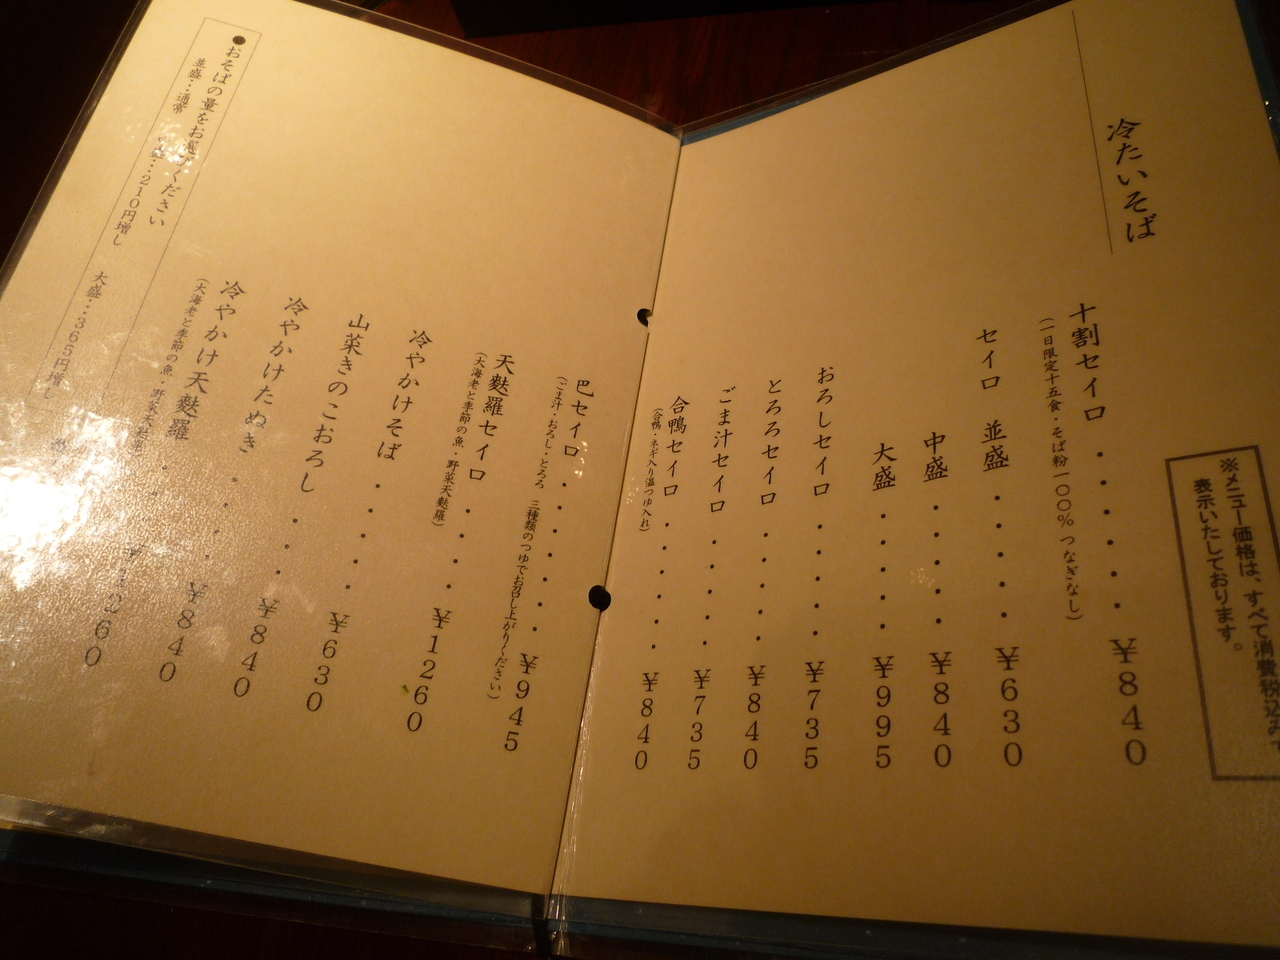 冷たいそば
※メニュー価格は、すべて消費税込みで
表示いたしております。
十割セイロ・・・・・・¥840
(一日限定十五食・そば粉一〇〇% つなぎなし)
セイロ 並盛・・・・・¥630
中盛・・・・・¥840
大盛・・・・・¥995
おろしセイロ・・・・・¥735
とろろセイロ・・・・・¥840
ごま汁セイロ・・・・・¥735
合鴨セイロ・・・・・・¥840
(合鴨・ネギ入り温つゆ入れ)
巴セイロ・・・・・・・¥945
(ごま汁・おろし・とろろ 三種類のつゆでお召し上がりください)
天麩羅セイロ・・・・¥1260
(大海老と季節の魚・野菜天麩羅)
冷やかけそば・・・・・¥630
山菜きのこおろし・・・¥840
冷やかけたぬき・・・・¥840
冷やかけ天麩羅・・・・¥1260
(大海老と季節の魚・野菜天麩羅)
●おそばの量をお選びください
並盛…通常 中盛…210円増し 大盛…365円増し